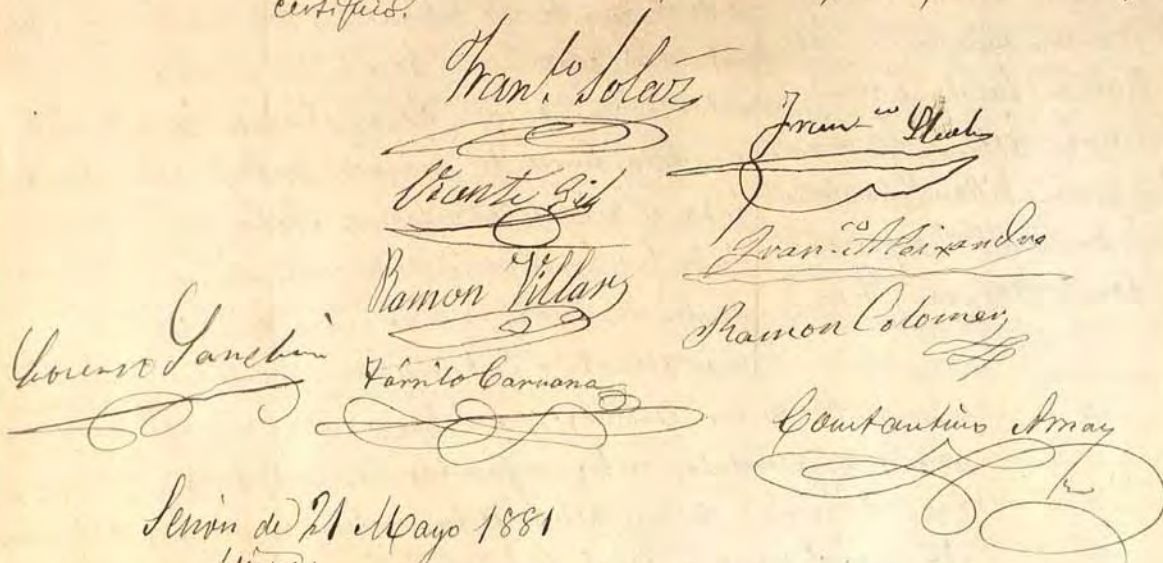 certifico.
Fran.co Solaz
Fran.co
Vicente Gil
Fran.co Aleixandre
Ramon Villar
Ramon Colomer
Lorenzo Sanchis
Caruana
Constantino Amay
Sesion de 21 Mayo 1881